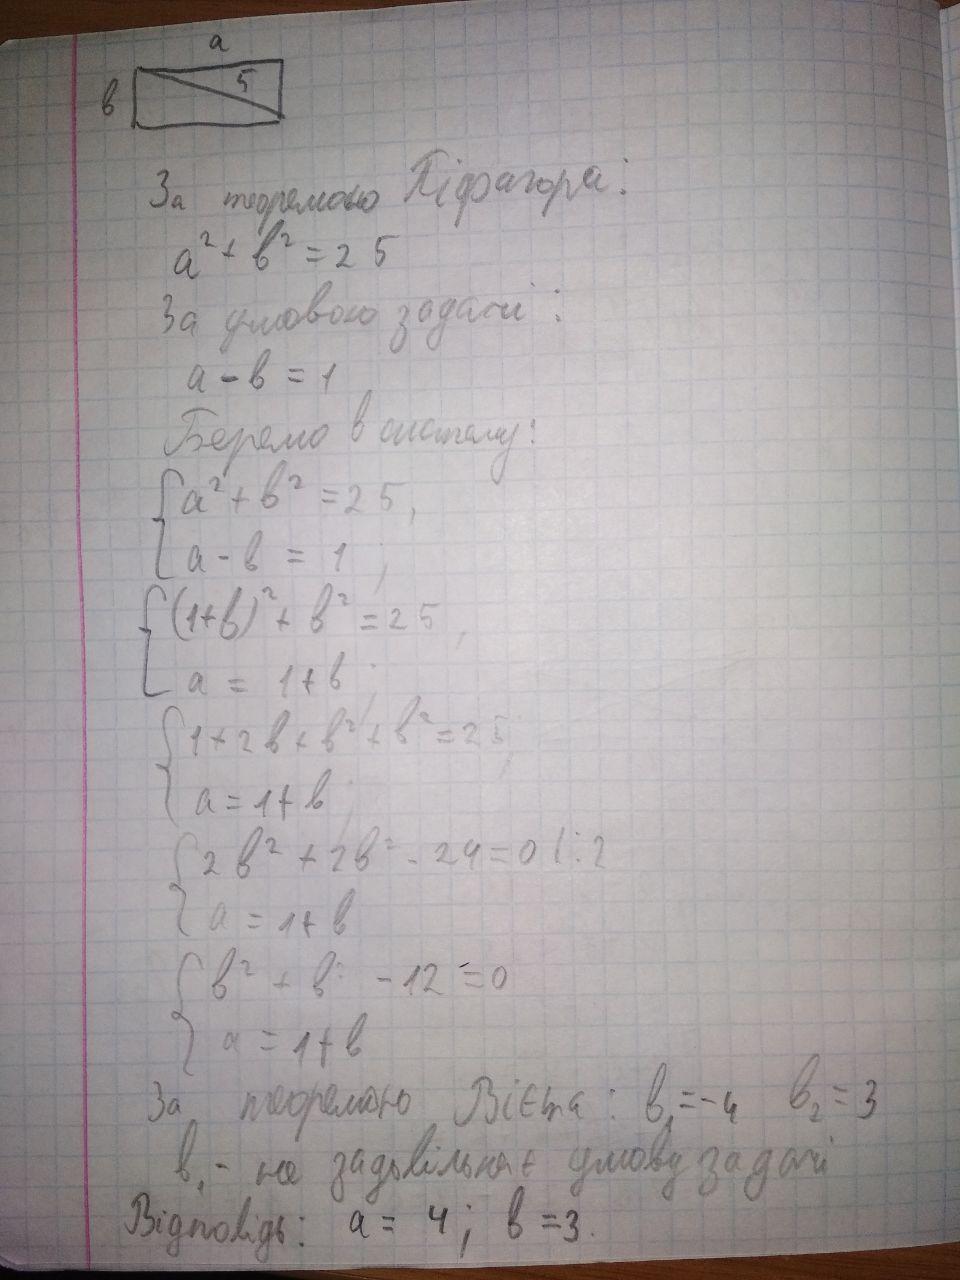 а
в 5
За теоремою Піфагора:
а² + в² = 25
За умовою задачі:
а - в = 1
Беремо в систему:
а² + в² = 25,
а - в = 1;
(1+в)² + в² = 25,
а = 1+в;
1 + 2в + в² + в² = 25,
а = 1+в;
2в² + 2в - 24 = 0 |:2
а = 1+в
в² + в - 12 = 0
а = 1+в
За теоремою Вієта: в₁ = -4 в₂ = 3
в₁ - не задовільняє умову задачі
Відповідь: а = 4; в = 3.